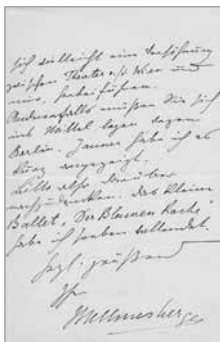 sich vielleicht eine Versöhnung
zwischen Theater a/d Wien und
mir, herbeiführen.
Andernfalls müssten Sie sich
ins Mittel legen
Berlin. habe ich es
kurz angezeigt.
Bitte also darüber
nachzudenken. Das kleine
Ballet, "Der Blumen Rache",
habe ich soeben vollendet.
Hzgl. grüßend
Ihr
Hellmesberger